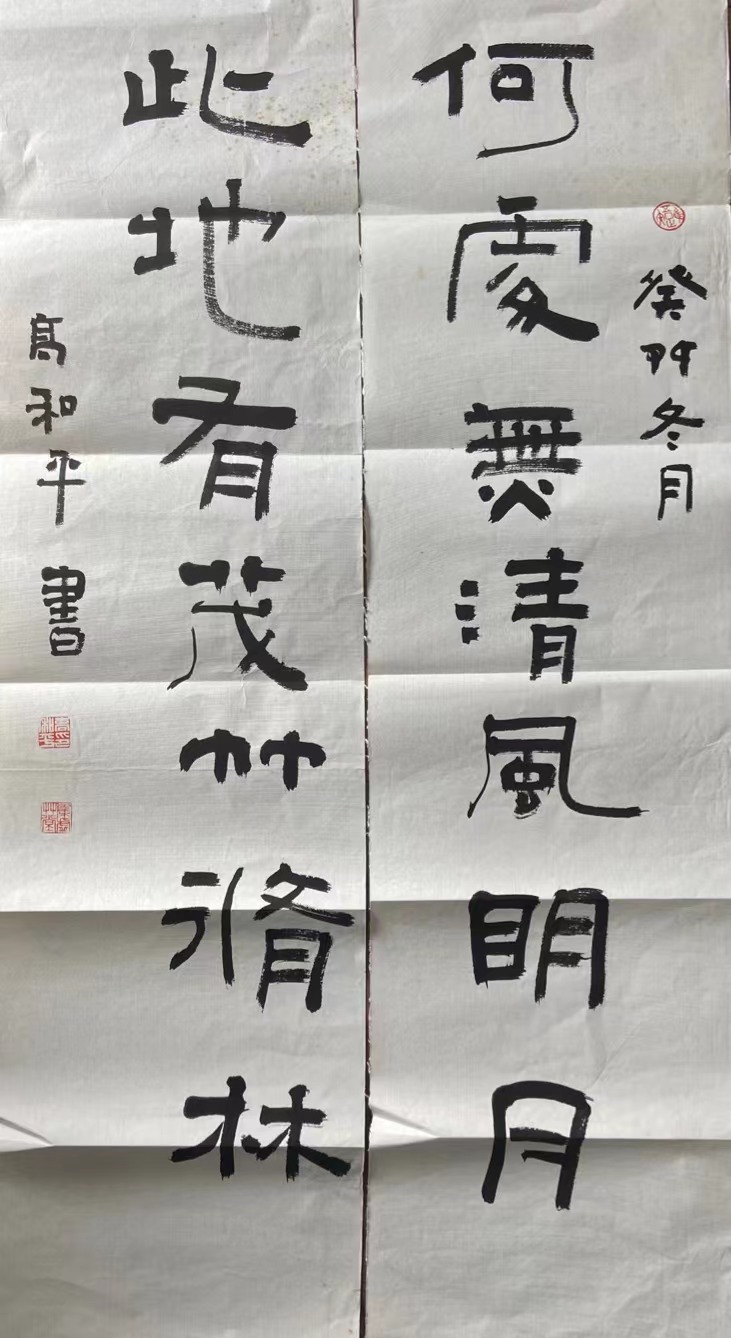 癸卯冬月
何處無清風眀月
此地有茂竹脩林
髙和平書